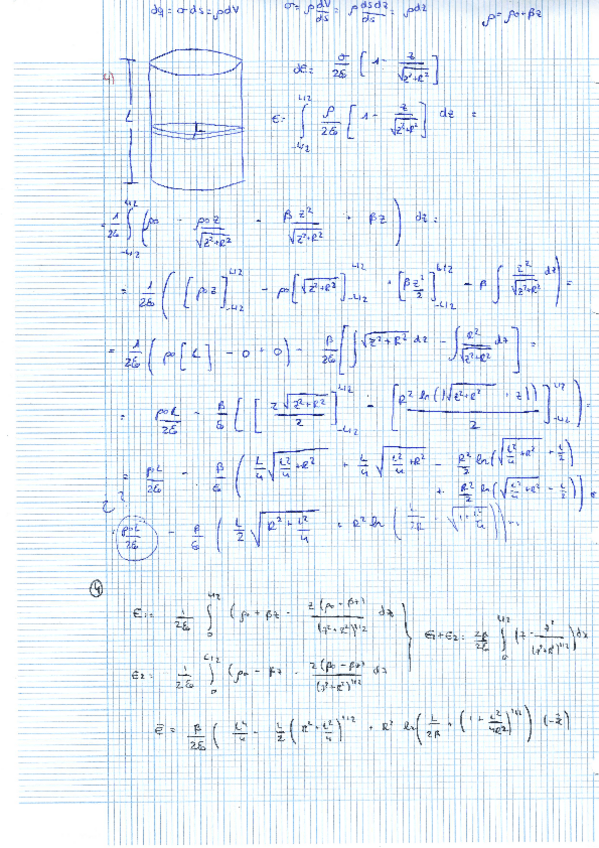 dq = σ ds = ρ dV    σ = ρ dV/ds = ρ ds dz/ds = ρ dz    ρ = ρ₀ + βz
4)
L
dE = σ/2ε₀ [1 - z/√(z²+R²)]
E = ∫_{-L/2}^{L/2} ρ/2ε₀ [1 - z/√(z²+R²)] dz =
= 1/2ε₀ ∫_{-L/2}^{L/2} (ρ₀ - ρ₀z/√(z²+R²) - βz²/√(z²+R²) + βz) dz =
= 1/2ε₀ ([ρ₀z]_{-L/2}^{L/2} - ρ₀[√(z²+R²)]_{-L/2}^{L/2} + [βz²/2]_{-L/2}^{L/2} - β ∫ z²/√(z²+R²) dz) =
= 1/2ε₀ (ρ₀[L] - 0 + 0) - β/2ε₀ [∫√(z²+R²) dz - ∫ R²/√(z²+R²) dz] =
= ρ₀L/2ε₀ - β/ε₀ ([z√(z²+R²)/2]_{-L/2}^{L/2} - [R² ln(|√(z²+R²) + z|)/2]_{-L/2}^{L/2}) =
= ρ₀L/2ε₀ - β/ε₀ (L/4 √(L²/4+R²) + L/4 √(L²/4+R²) - R²/2 ln(√(L²/4+R²) + L/2)
+ R²/2 ln(√(L²/4+R²) - L/2)) =
??
ρ₀L/2ε₀ - β/ε₀ (L/2 √(R²+L²/4) + R² ln(
④
E1 = 1/2ε₀ ∫_0^{L/2} (ρ₀ + βz - z(ρ₀ - βz)/(z²+R²)^{1/2}) dz
E1+E2 = 2β/2ε₀ ∫_0^{L/2} (z - z²/(z²+R²)^{1/2}) dz
E2 = 1/2ε₀ ∫_0^{L/2} (ρ₀ - βz - z(ρ₀ - βz)/(z²+R²)^{1/2} dz
E = β/2ε₀ (L²/4 - L/2 (R² + L²/4)^{1/2} + R² ln(L/2R + (1 + L²/4R²)^{1/2})) (-z)